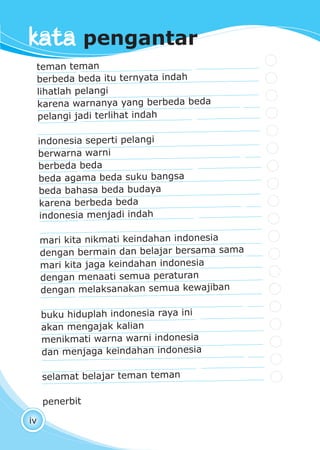 kata pengantar
teman teman
berbeda beda itu ternyata indah
lihatlah pelangi
karena warnanya yang berbeda beda
pelangi jadi terlihat indah
indonesia seperti pelangi
berwarna warni
berbeda beda
beda agama beda suku bangsa
beda bahasa beda budaya
karena berbeda beda
indonesia menjadi indah
mari kita nikmati keindahan indonesia
dengan bermain dan belajar bersama sama
mari kita jaga keindahan indonesia
dengan menaati semua peraturan
dengan melaksanakan semua kewajiban
buku hiduplah indonesia raya ini
akan mengajak kalian
menikmati warna warni indonesia
dan menjaga keindahan indonesia
selamat belajar teman teman
penerbit
iv